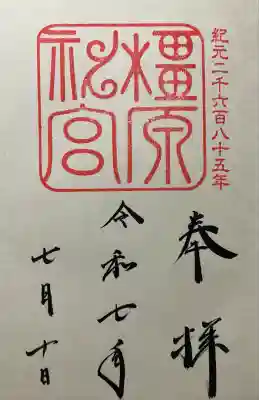 紀元二千六百八十五年
橿原神宮
奉拝
令和七年
七月十日